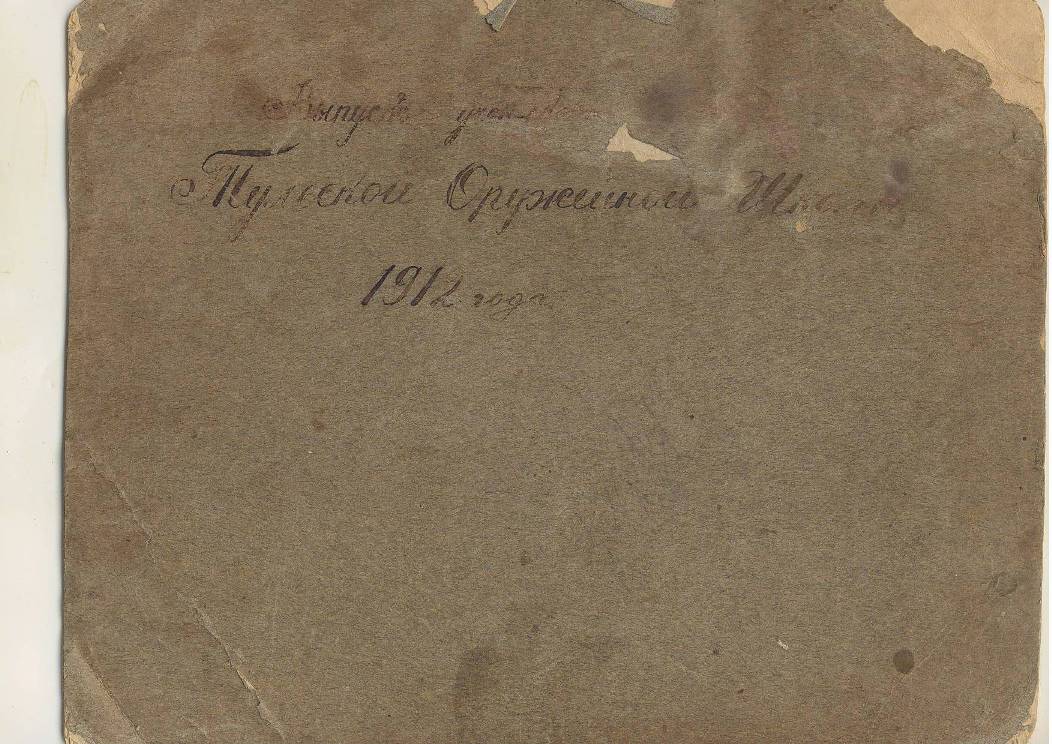 Выпускъ
Тульской Оружейной Школы
1912 года